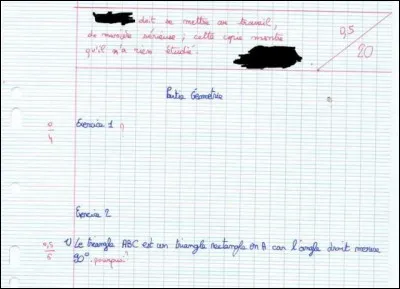 doit se mettre au travail,
de manière sérieuse, cette copie montre
qu'il n'a rien étudié.
0,5
20
Partie Géométrie
0
4
Exercice 1 ?
Exercice 2
0,5
5
1) Le triangle ABC est un triangle rectangle en A car l'angle droit mesure
90°. pourquoi?